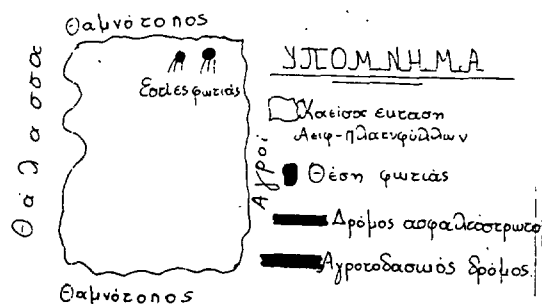 Θαμνότοπος
Θάλασσα
Εστίες φωτιάς
Αγροί
Θαμνότοπος
ΥΠΟΜΝΗΜΑ
Καείσα εκταση
Αειφ-πλατυφύλλων
Θέση φωτιάς
Δρόμος ασφαλτόστρωτο
Αγροτοδασικός δρόμος.